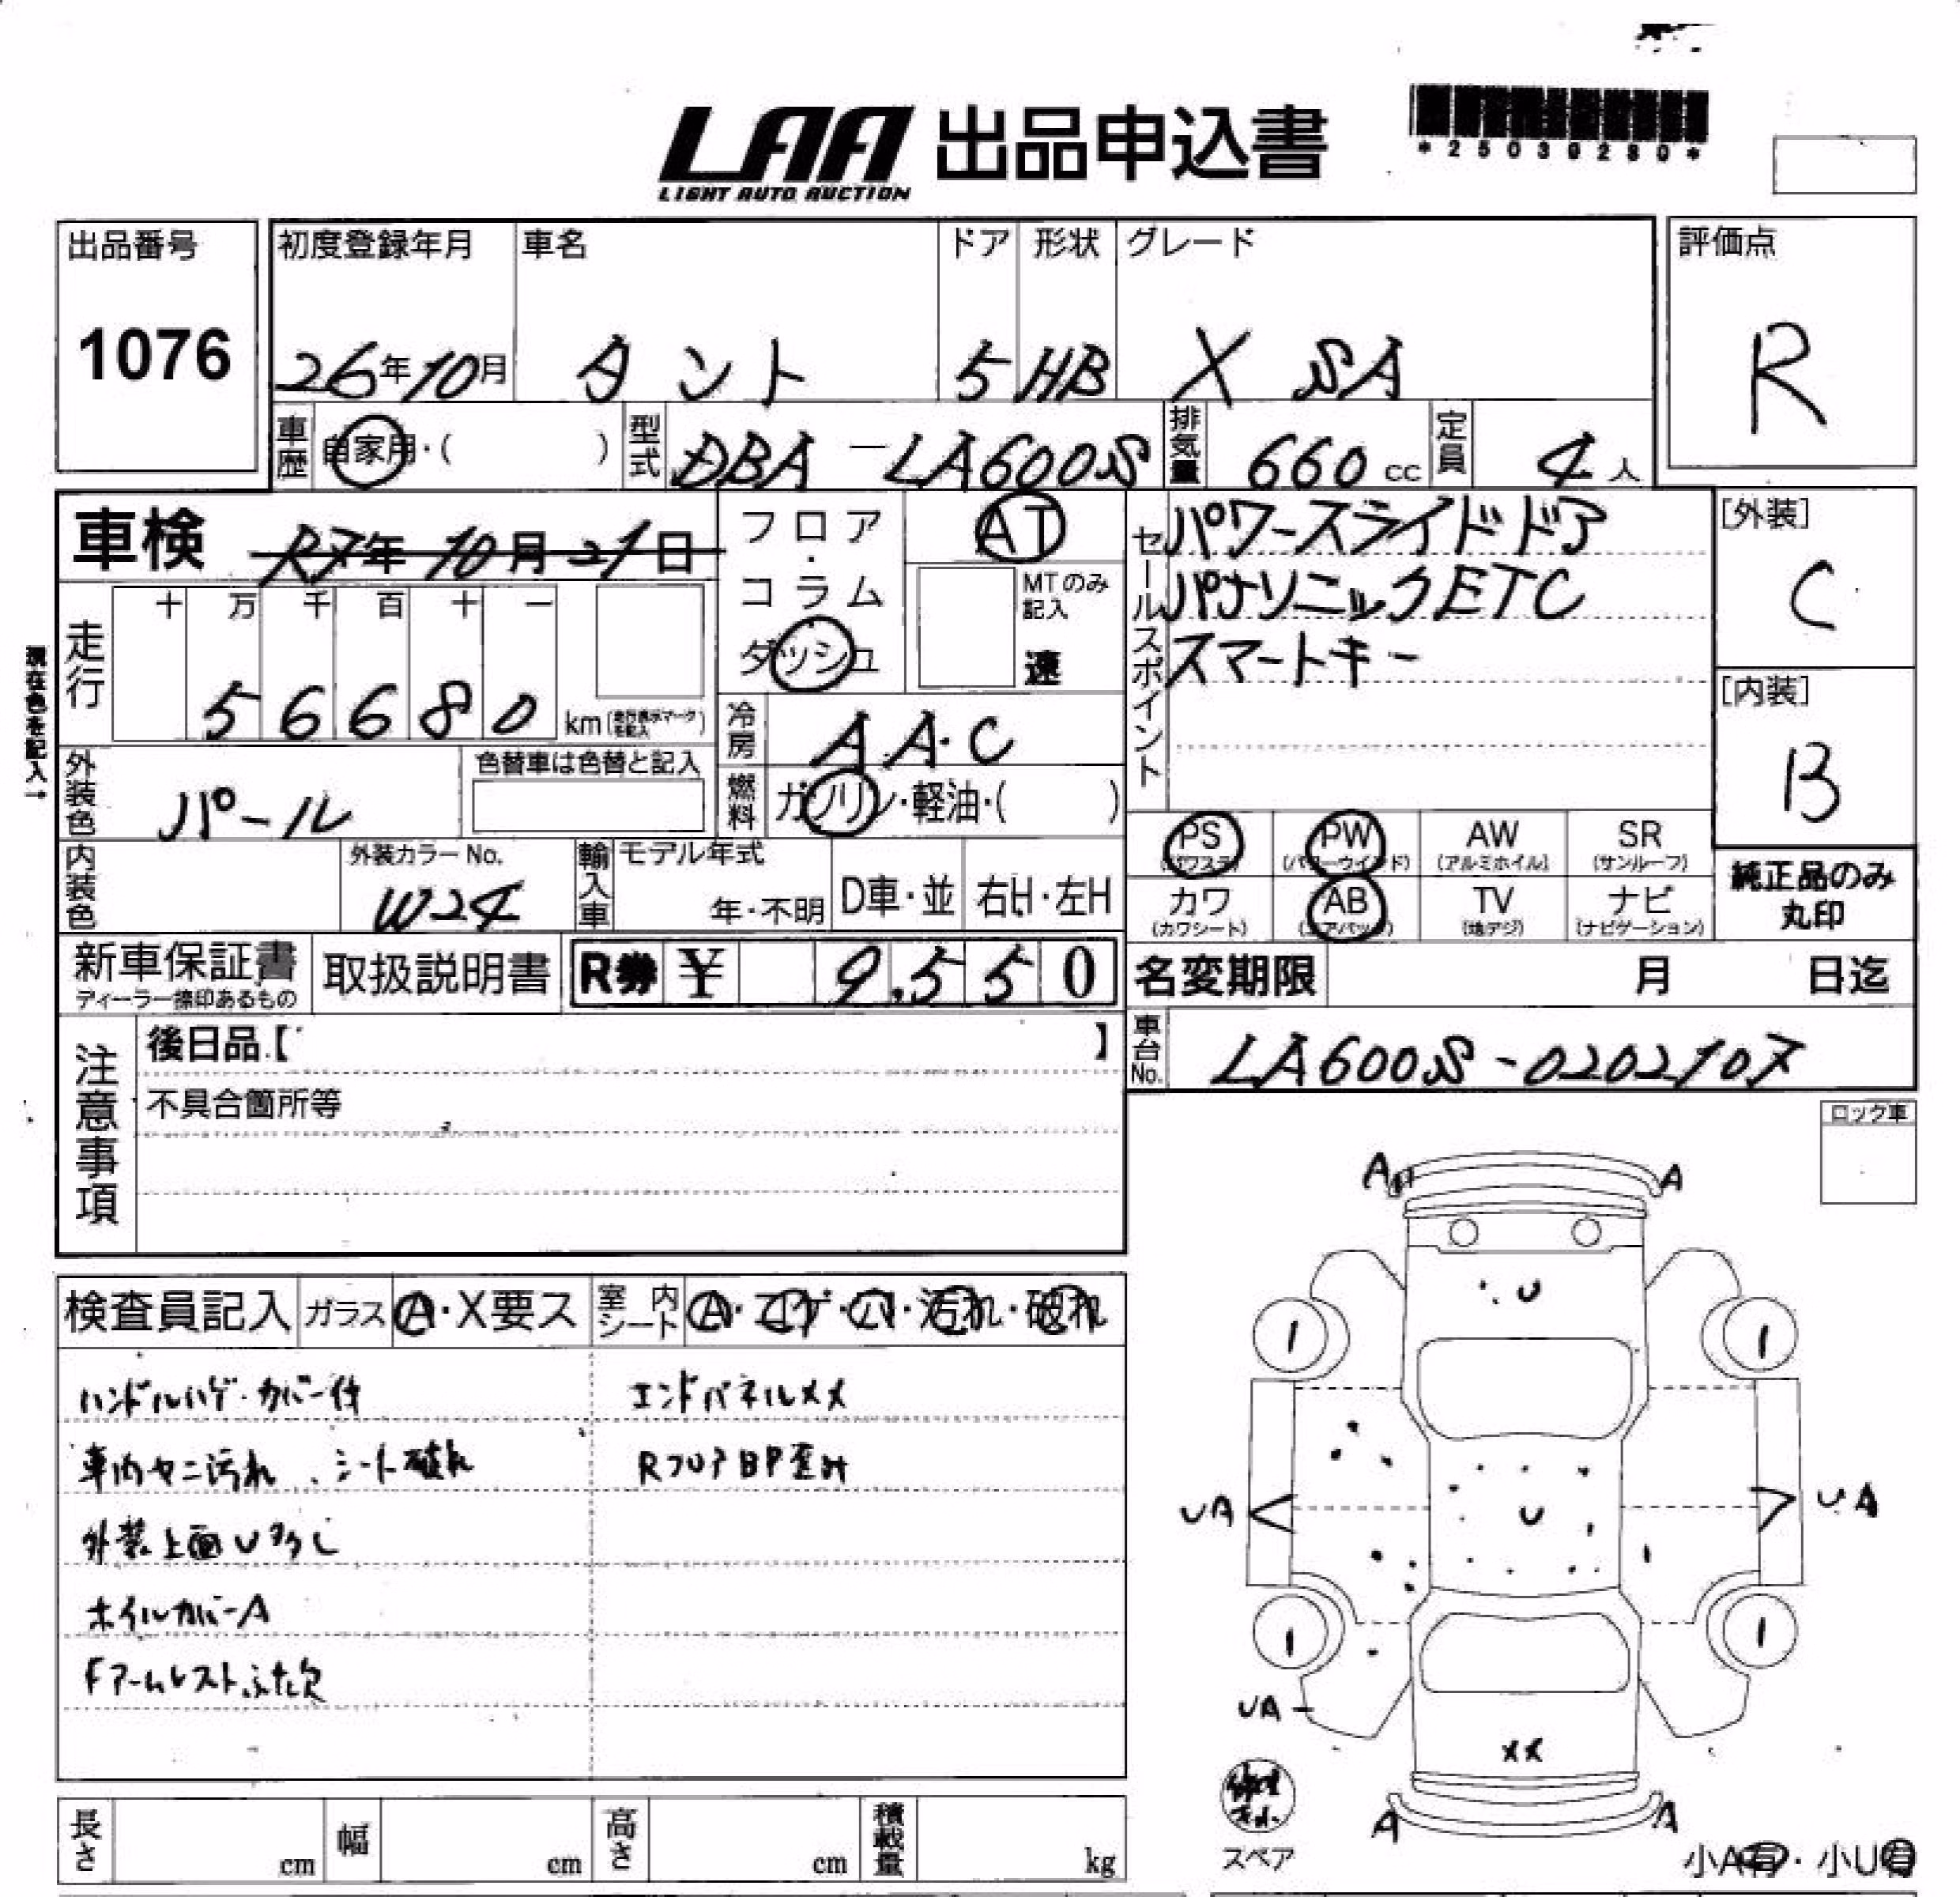 LAA 出品申込書
LIGHT AUTO AUCTION
*25030280*
出品番号
1076
初度登録年月
26年10月
車名
タント
ドア
5
形状
HB
グレード
X SA
評価点
R
車歴
自家用・( )
型式
DBA-LA600S
排気量
660 cc
定員
4人
車検
R7年10月21日
走行
十 万 千 百 十 一
56680 km
現在色を記入→
フロア・コラム
ダッシュ
AT
MTのみ記入
速
セールスポイント
パワースライドドア
パナソニックETC
スマートキー
[外装]
C
[内装]
B
外装色
パール
色替車は色替と記入
冷房
AA・C
燃料
ガソリン・軽油・( )
内装色
外装カラーNo.
W24
輸入車
モデル年式
年・不明
D車・並
右H・左H
PS
(パワステ)
PW
(パワーウインド)
AW
(アルミホイル)
SR
(サンルーフ)
カワ
(カワシート)
AB
(エアバック)
TV
(地デジ)
ナビ
(ナビゲーション)
純正品のみ
丸印
新車保証書
ディーラー捺印あるもの
取扱説明書
R券 ¥ 9,550
名変期限 月 日迄
車台No.
LA600S-0202107
注意事項
後日品【 】
不具合箇所等
ロック車
検査員記入
ガラス
A・X要ス
室内シート
A・コゲ・ハリ・汚れ・破れ
ハンドルハゲ・カバー付
車内ヤニ汚れ、シート破れ
外装上面U多し
ホイルカバーA
Fアームレストふた欠
エンドパネルXX
RフロアBP歪み
A A
U
1 1
UA U UA
1 1
UA
XX
A A
修理キット
スペア
小A有・小U有
長さ cm
幅 cm
高さ cm
積載量 kg